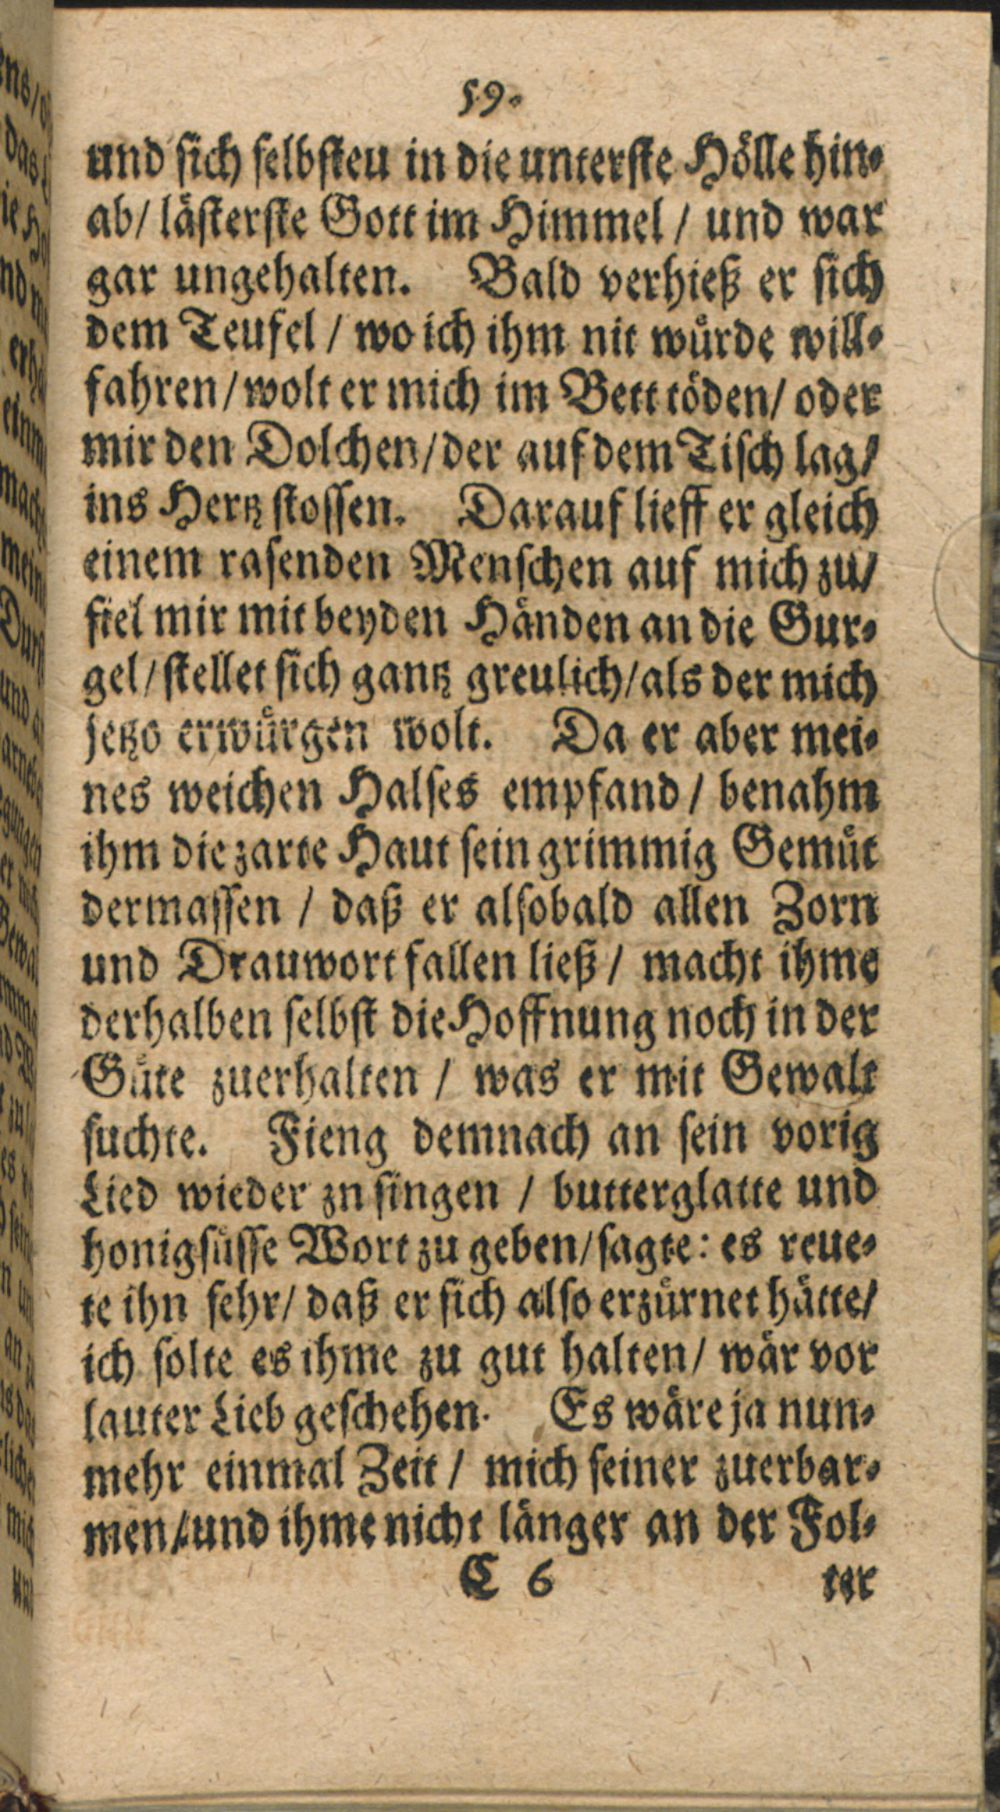 59.
und sich selbsteu in die unterste Hölle hin-
ab/ lästerste Gott im Himmel / und war
gar ungehalten. Bald verhieß er sich
dem Teufel / wo ich ihm nit wuͤrde will-
fahren/ wolt er mich im Bett töden/ oder
mir den Dolchen/ der auf dem Tisch lag/
ins Hertz stossen. Darauf lieff er gleich
einem rasenden Menschen auf mich zu/
fiel mir mit beyden Haͤnden an die Gur-
gel/ stellet sich gantz greulich/ als der mich
jetzo erwuͤrgen wolt. Da er aber mei-
nes weichen Halses empfand / benahm
ihm die zarte Haut sein grimmig Gemuͤt
dermassen / daß er alsobald allen Zorn
und Drauwort fallen ließ / macht ihme
derhalben selbst die Hoffnung noch in der
Guͤte zuerhalten / was er mit Gewalt
suchte. Fieng demnach an sein vorig
Lied wieder zn singen / butterglatte und
honigsuͤsse Wort zu geben/ sagte: es reue-
te ihn sehr/ daß er sich also erzuͤrnet haͤtte/
ich solte es ihme zu gut halten/ waͤr vor
lauter Lieb geschehen. Es waͤre ja nun-
mehr einmal Zeit / mich seiner zuerbar-
men/ und ihme nicht laͤnger an der Fol-
C 6 ter